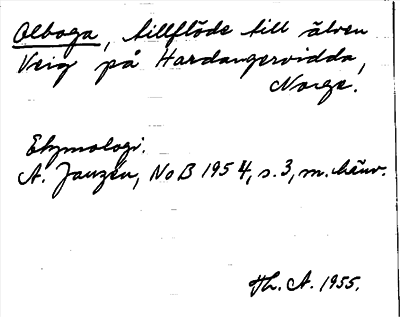 Olboga, tillflöde till älven
Veig på Hardangervidda,
Norge.
Etymologi.
A. Janzén, NoB 1954, s. 3, m. hänv.
Th. A. 1955.